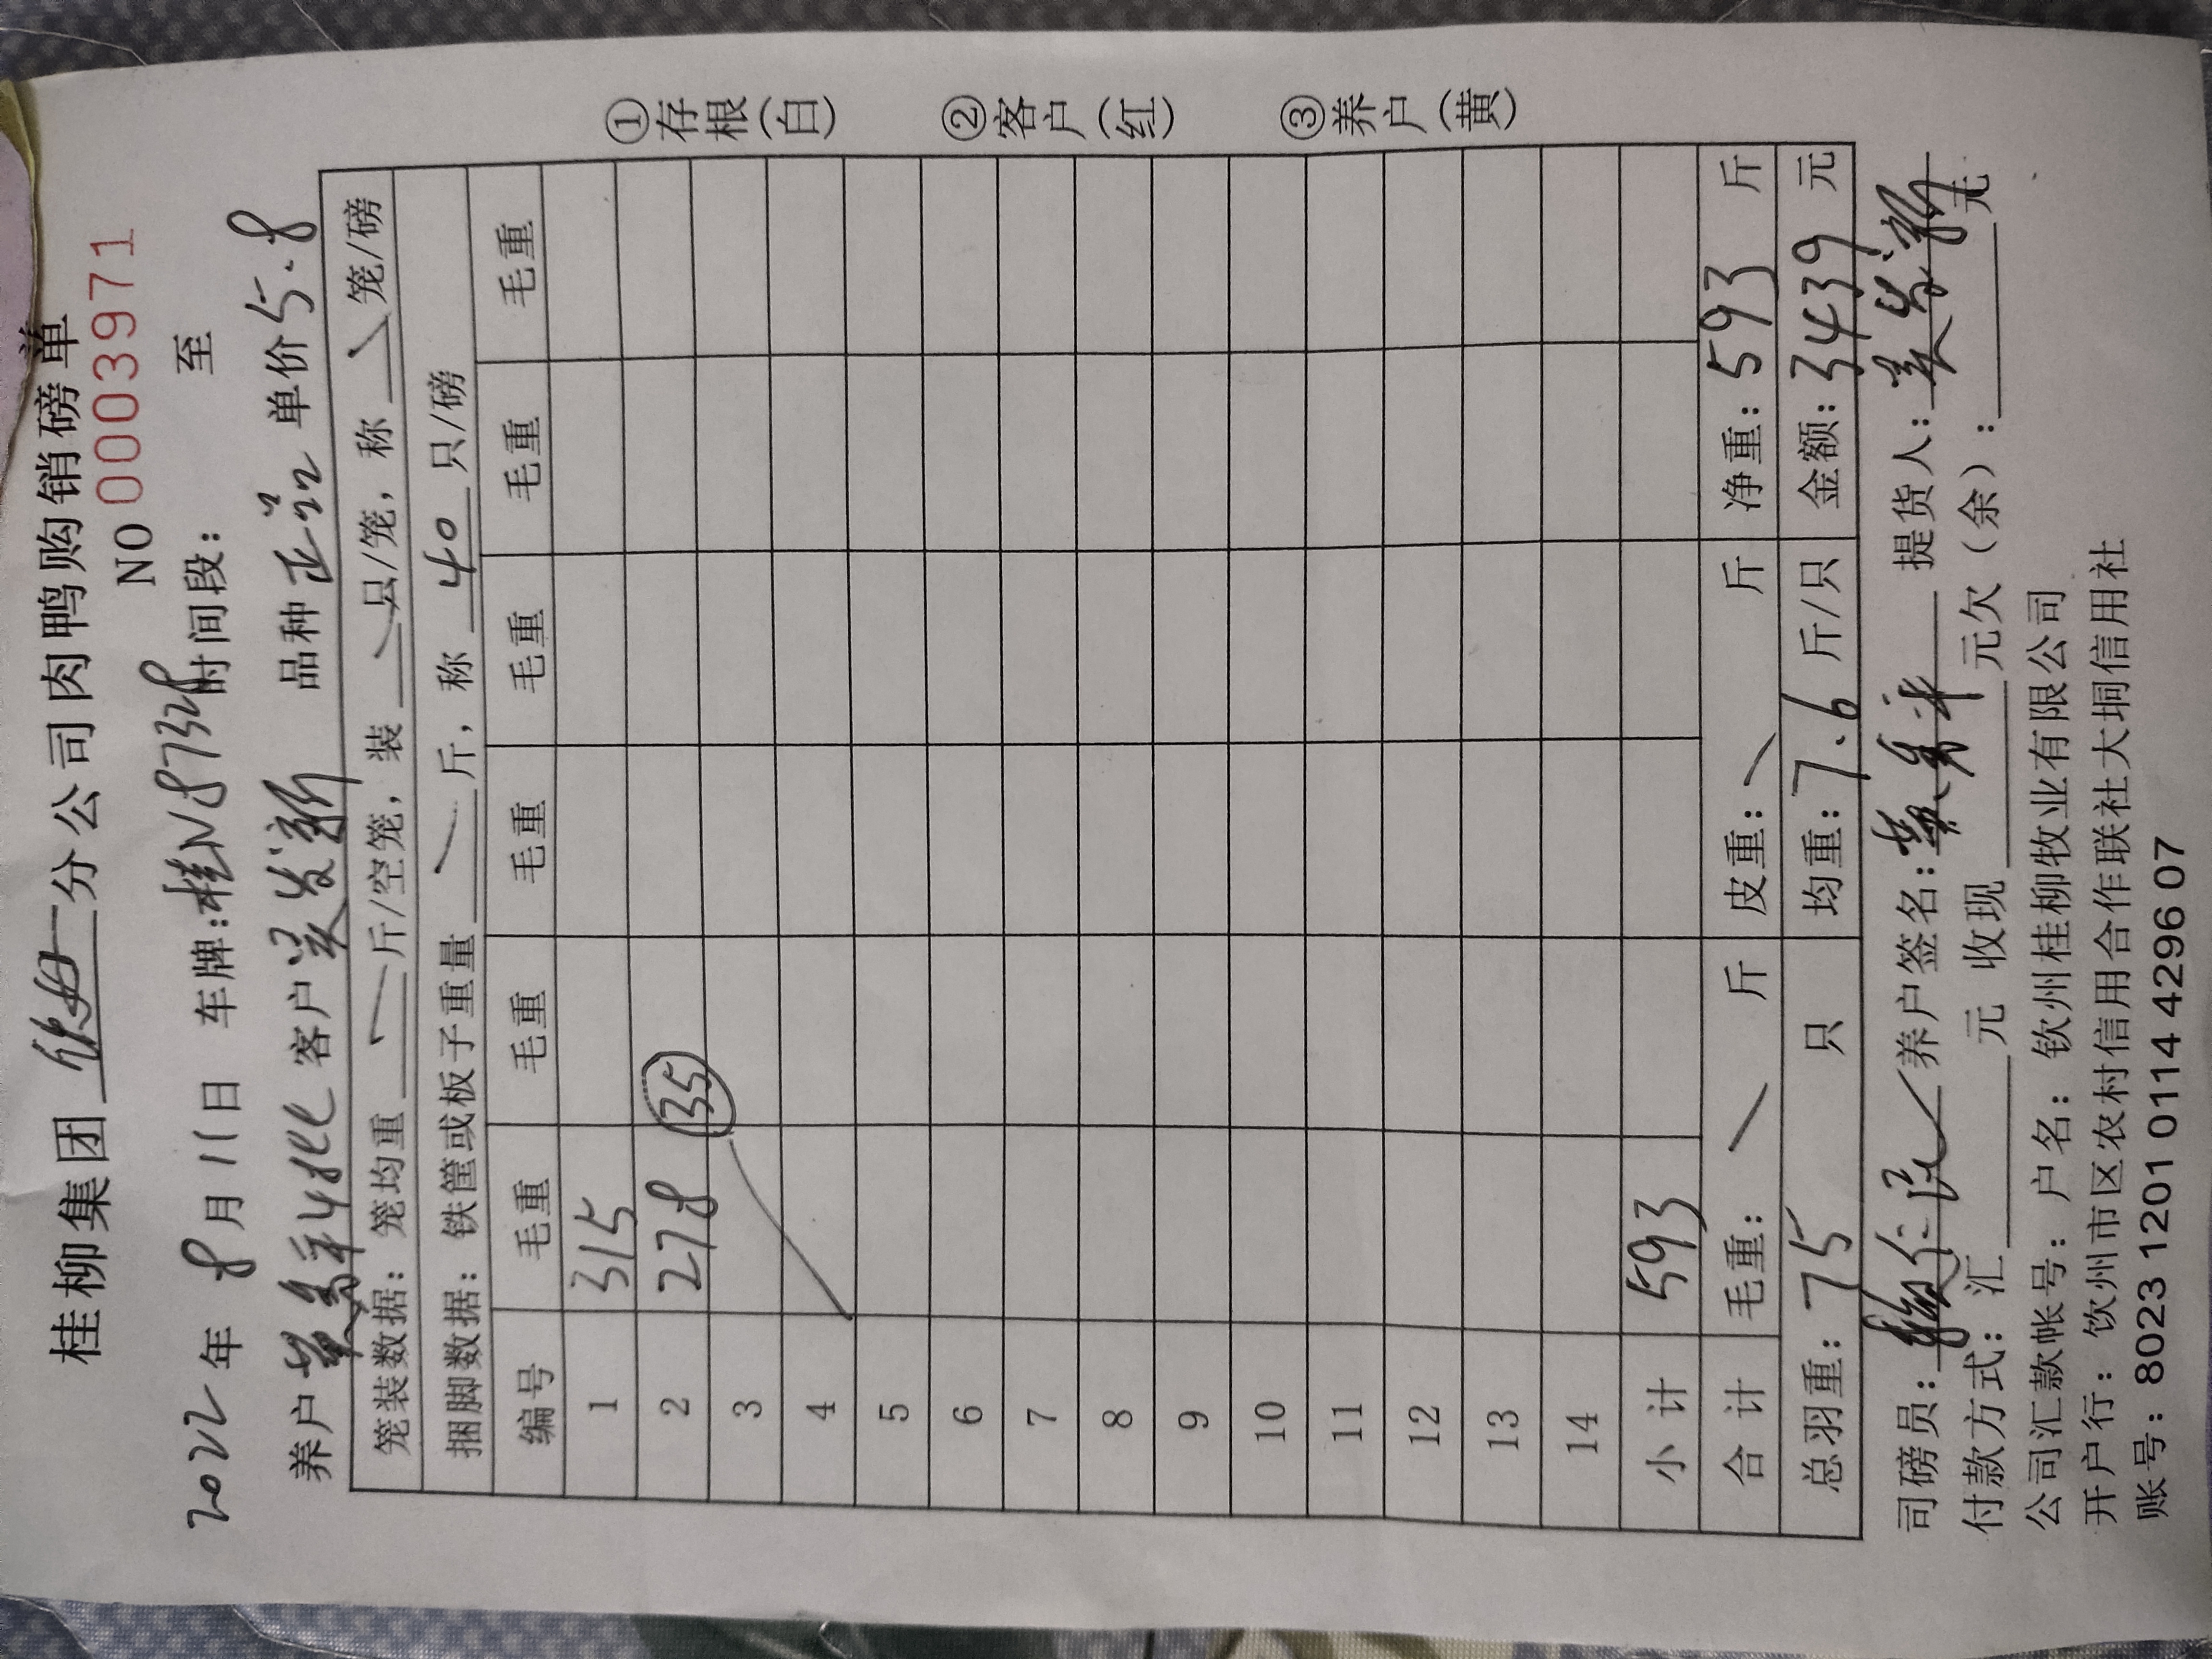 桂柳集团 分公司肉鸭购销磅单
NO 0003971
2022年 8月11日 车牌:桂N8732P时间段: 至
养户 客户 吴发新 品种 正品 单价 5.8
笼装数据: 笼均重 斤/空笼, 装 只/笼, 称 笼/磅
捆脚数据: 铁筐或板子重量 斤, 称 40 只/磅
编号 毛重 毛重 毛重 毛重 毛重 毛重
1 315
2 278 35
3
4
5
6
7
8
9
10
11
12
13
14
小计 593
合计 毛重: 斤 皮重: 斤 净重: 593 斤
总羽重: 75 只 均重: 7.6 斤/只 金额: 3439 元
司磅员: 养户签名: 提货人: 吴发新
付款方式: 汇 元 收现 元欠(余): 元
公司汇款帐号: 户名: 钦州桂柳牧业有限公司
开户行: 钦州市区农村信用合作联社大垌信用社
账号: 8023 1201 0114 4296 07
①存根(白) ②客户(红) ③养户(黄)